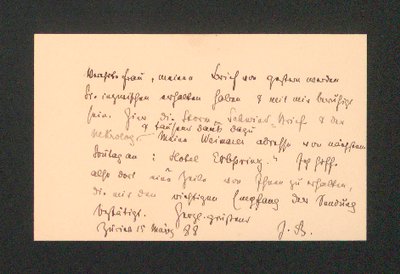 Verehrte Frau, meinen Brief von gestern werden
Sie inzwischen erhalten haben & mit mir beruhigt
sein. Hier die Storm "Schwind" Briefe & der
& tausend Dank dazu
Nekrolog. Meine Weimarer Adresse von nächstem
Sonntag an: "Hotel Erbprinz." Ich hoffe
also dort eine Zeile von Ihnen zu erhalten,
die mir den richtigen Empfang der Sendung
bestätigt. Herzl. grüßend
Zürich 15 März 88 J. B.